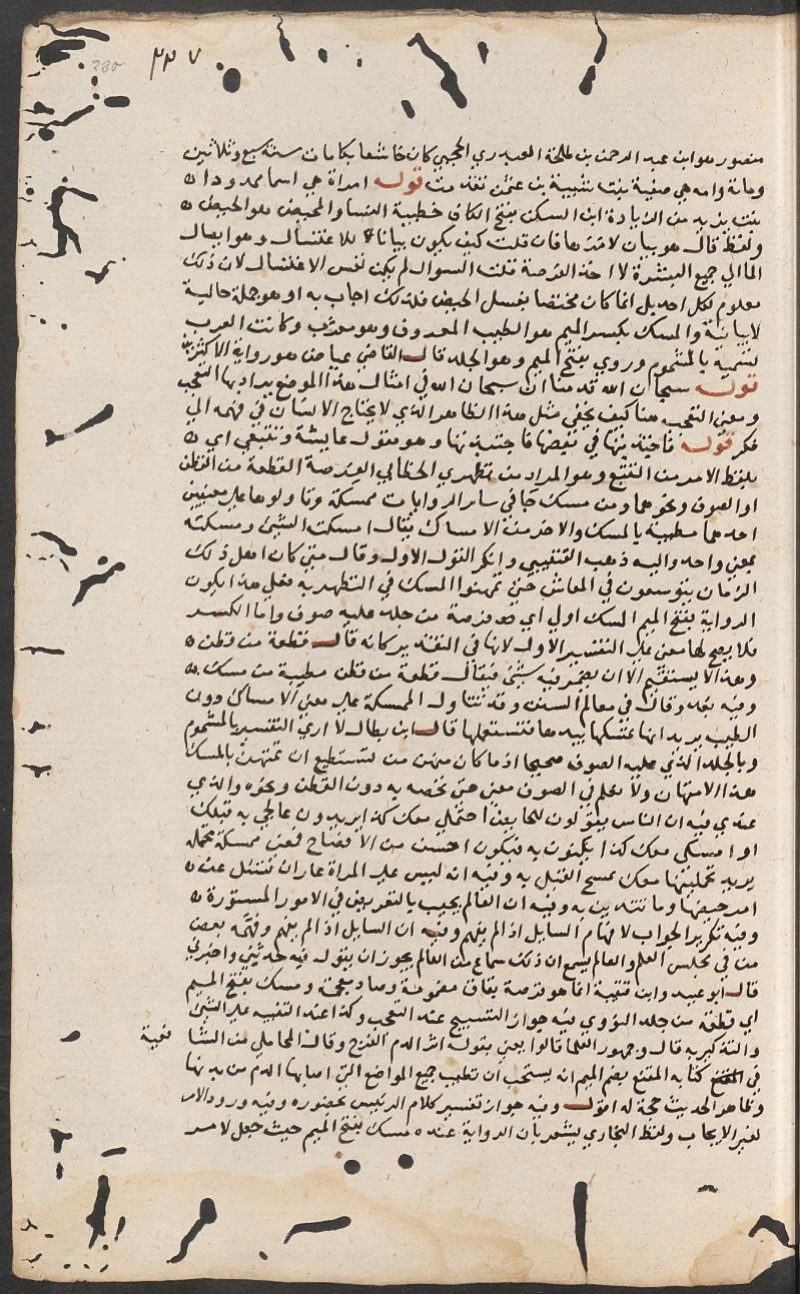 ٣٣٧
230
منصور هو ابن عبد الرحمن بن طلحة العبدري الحجبي كان خاشعا بكا مات سنة سبع وثلاثين
وماية وامه هي صفية بنت شيبة بن عثمن تقدمت قوله امراة هي اسما ممدودا
بنت يزيد من الزيادة ابن السكن بفتح الكاف خطيبة النسا والمحيض هو الحيض
ولفظ قال هو بيان لامرها فان قلت كيف يكون بيانا للاغتسال وهو ايصال
الما الي جميع البشرة لا اخذ الفرصة قلت السوال لم يكن نفس الاغتسال لان ذلك
معلوم لكل احد بل انما كان مختصا بغسل الحيض فلذلك اجاب به او هو جملة حالية
لا بيانية والمسك بكسر الميم هو الطيب المعروف وهو معرب وكانت العرب
تسميه بالمشموم وروي بفتح الميم وهو الجلد قال القاضي عياض هو رواية الاكثرين
قوله سبحان الله قد مثنا ان سبحان الله في امثال هذا الموضع يراد بها التعجب
ومعني التعجب هنا كيف يخفي مثل هذا الظاهر الذي لا يحتاج الانسان في فهمه الي
فكر قوله فاجتبذتها في بعضها فاجتذبتها وهو مقول عايشة وتتبعي اي
بلفظ الامر من التتبع وهو المراد من تطهري الخطابي الفرصة القطعة من القطن
او الصوف ونحوهما ومن مسك جا في ساير الروايات ممسكة وتاولوها علي معنيين
احدهما مطيبة بالمسك والاخر من الامساك يقال امسكت الشي ومسكته
بمعني واحد واليه ذهب القتيبي وانكر القول الاول وقال متي كان اهل ذلك
الزمان يتوسعون في المعاش حتي يمتهنوا المسك في التطهر به فعلي هذا يكون
الرواية بفتح الميم المسك اولي اي فرصة من جلد عليه صوف واما الكسر
فلا يصح لها معني علي التفسير الاول لانها في التقدير كانه قال قطعة من قطن
وهذا لا يستقيم الا ان يضمر فيه شي فيقال قطعة من قطن مطيبة من مسك
وفيه بعد وقال في معالم السنن وقد نتاول الممسكة علي معني الامساك دون
الطيب يريد انها تمسكها بيدها فتستعملها قال ابن بطال لا اري التفسير بالمشموم
وبالجلد الذي عليه الصوف صحيحا اذ ما كان منهن من تستطيع ان تمتهن بالمسك
هذا الامتهان ولا يعلم في الصوف معني حتي نخصه به دون القطن ونحوه والذي
عندي فيه ان الناس يقولون للحايض احتملي معك كذا يريدون عالجي به قبلك
او امسكي معك كذا يكنون به فيكون احسن من الافصاح فمعني ممسكة محتملة
يريد تحملينها معك بمسح القبل به وفيه انه ليس علي المراة عار ان تسئل عن
امر حيضها وما تتدين به وفيه ان العالم يجيب بالتعريض في الامور المستورة
وفيه تكرير الجواب لافهام السايل اذ الم يفهم وفيه ان السايل اذ الم يفهم وفهمه بعض
من في مجلس العلم والعالم يسمع ان ذلك سماع من العالم يجوز ان يقول فيه حدثني واخبرني
قال ابو عبيد وابن قتيبة انما هو قرصة بقاف مضمومة وصاد معجمة ومسك بفتح الميم
اي قطعة من جلد النووي فيه جواز التسبيح عند التعجب وكذا عند التنبيه علي الشي
والتذكير به قال وجمهور العلما قالوا يعني بقوله اثر الدم الفرج وقال المحاملي من الشا
فعية
في كتابه المقنع بضم الميم انه يستحب ان تطيب جميع المواضع التي اصابها الدم من بدنها
وظاهر الحديث حجة له اقول وفيه جواز تفسير كلام الرئيس بحضوره وفيه ورود الامر
لغير الايجاب ولفظ البخاري يشعر بان الرواية عنده مسك بفتح الميم حيث جعل لامر